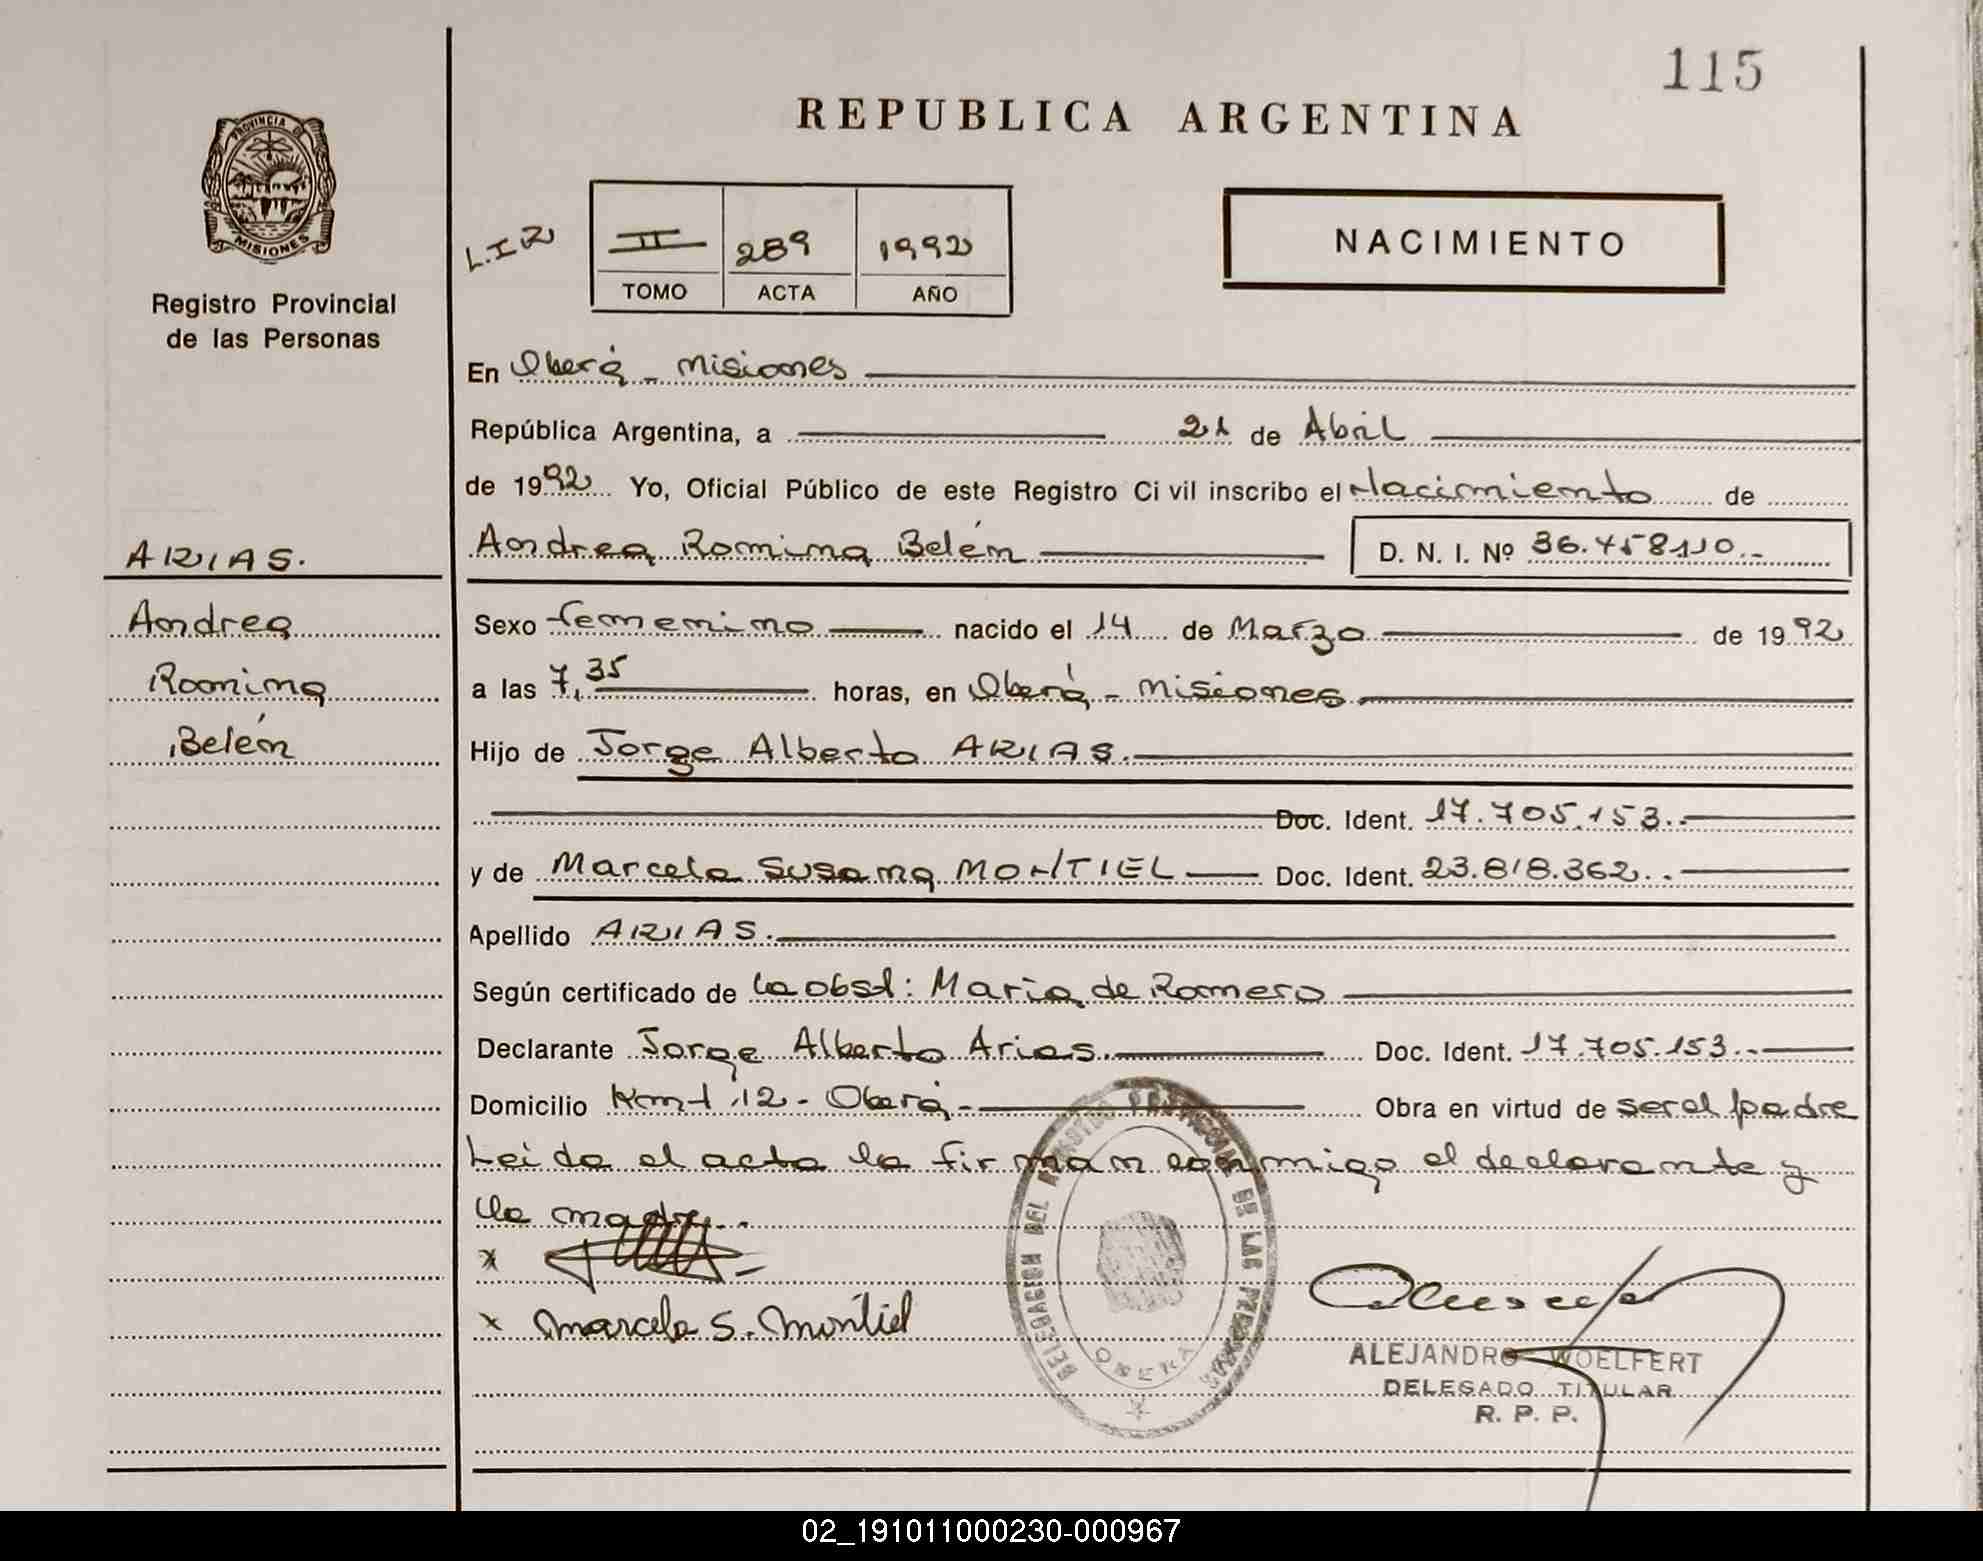 115
REPUBLICA ARGENTINA
PROVINCIA DE
MISIONES
Registro Provincial
de las Personas
L. I IV
II 289 1992
TOMO ACTA AÑO
NACIMIENTO
En Oberá - Misiones
República Argentina, a 21 de Abril
de 1992 Yo, Oficial Público de este Registro Civil inscribo el Nacimiento de
ARIAS.
Andrea Romina Belén D. N. I. Nº 36.458110.-
Andrea
Sexo femenino nacido el 14 de Marzo de 1992
Romina
a las 7,35 horas, en Oberá - Misiones
Belén
Hijo de Jorge Alberto ARIAS.
Doc. Ident. 17.705.153.-
y de Marcela Susana MONTIEL Doc. Ident. 23.818.362.-
Apellido ARIAS.
Según certificado de la obst: Maria de Romero
Declarante Jorge Alberto Arias. Doc. Ident. 17.705.153.-
Domicilio Kmt 12 - Oberá - Obra en virtud de ser el padre
Leida el acta la firman conmigo el declarante y
la madre.-
x
x Marcela S. Montiel
DELEGACION DEL REGISTRO PROVINCIAL DE LAS PERSONAS
OBERA
ALEJANDRO WOELFERT
DELEGADO TITULAR
R. P. P.
02_191011000230-000967